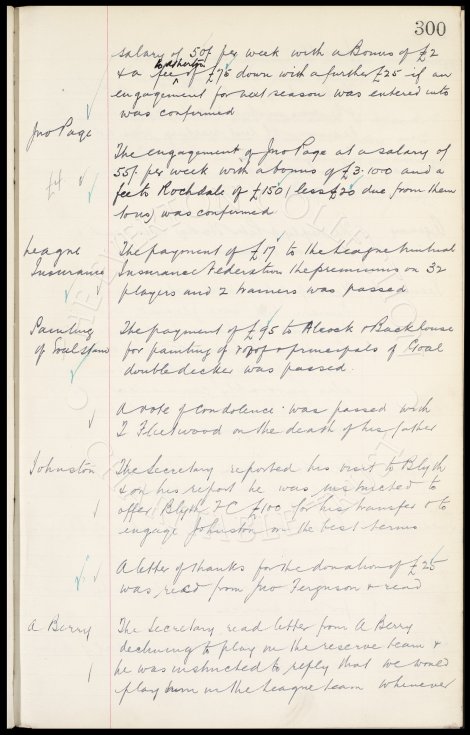 300
salary of 50/- per week with a Bonus of £2
to Atherton
& a fee of £75 down with a further £25 if an
engagement for next season was entered into
was confirmed
Jno Page
The engagement of Jno Page at a salary of
£4
55/- per week with a bonus of £3.100 and a
fee to Rochdale of £150 (less £20 due from them
to us) was confirmed
League
Insurance
The payment of £17 to the League Mutual
Insurance Federation the premiums on 32
players and 2 trainers was passed
Painting
of Goal Stand
The payment of £95 to Alcock & Backhouse
for painting of roof & principals of Goal
double decker was passed.
A vote of condolence was passed with
T Fleetwood on the death of his father
Johnston
The Secretary reported his visit to Blyth
& on his report he was instructed to
offer Blyth FC £100 for his transfer & to
engage Johnston on the best terms
A letter of thanks for the donation of £25
was recd from Jno Ferguson & read
A Berry
The Secretary read letter from A Berry
declining to play in the reserve team &
he was instructed to reply that we would
play him in the League team whenever